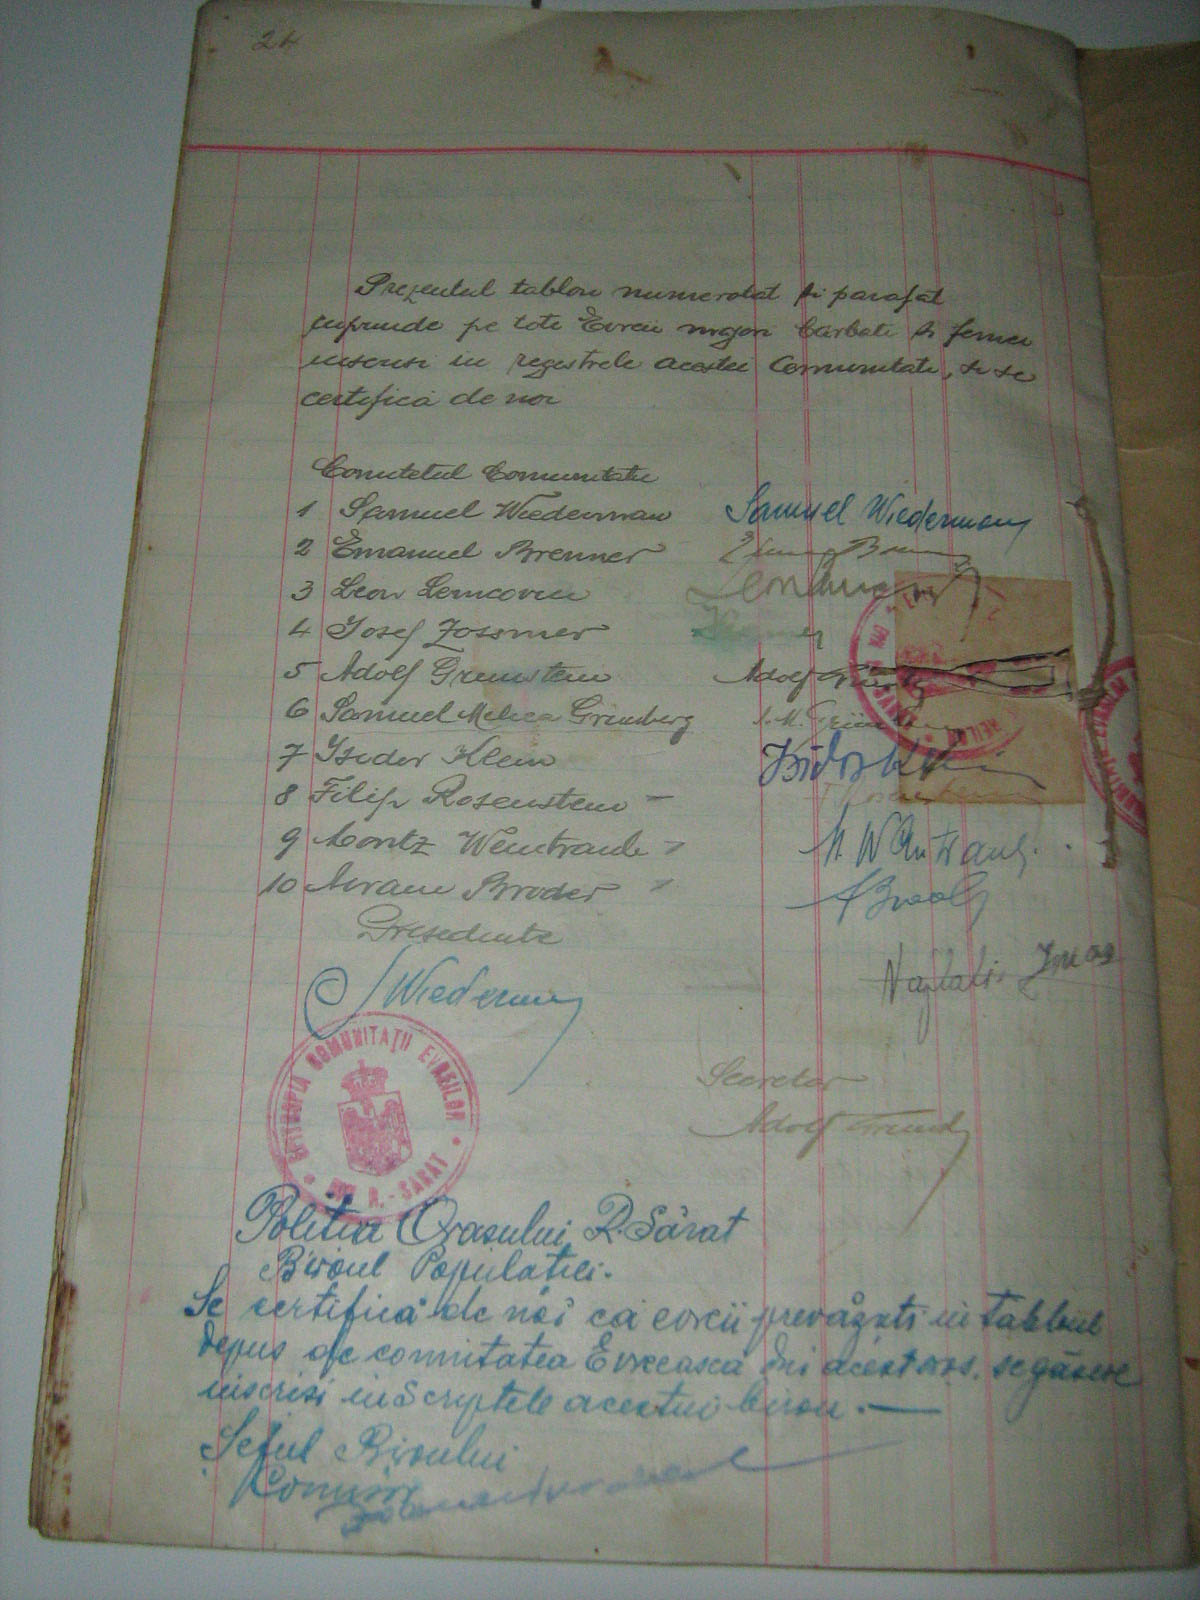 24
Prezentul tablou numerotat si parafat
cuprinde pe toti Evreii majori barbati si femei
inscrisi in registrele acestei Comunitati, si se
certifica de noi
Comitetul Comunitatii
1 Samuel Wiederman Samuel Wiederman
2 Emanuel Brenner
3 Leon Lemcovici
4 Iosef Zossmer
5 Adolf Grunstein Adolf
6 Samuel Melica Grimberg S. M. Grün
7 Isidor Klein Isidor Klein
8 Filip Rosenstein
9 Moritz Weintraub M. Weintraub
10 Avram Broder A Brod
Presedinte
S Wiederman
Naftali
Secretar
Adolf
COMUNITAŢII EVREILOR
DIN R.-SARAT
Politia Orasului R. Sărat
Biroul Populatiei.
Se certifică de noi că evreii prevăzuti in tabloul
depus de comunitatea Evreeasca din acest oras, se găsesc
inscrisi in scriptele acestui birou. —
Seful Biroului
Comisar